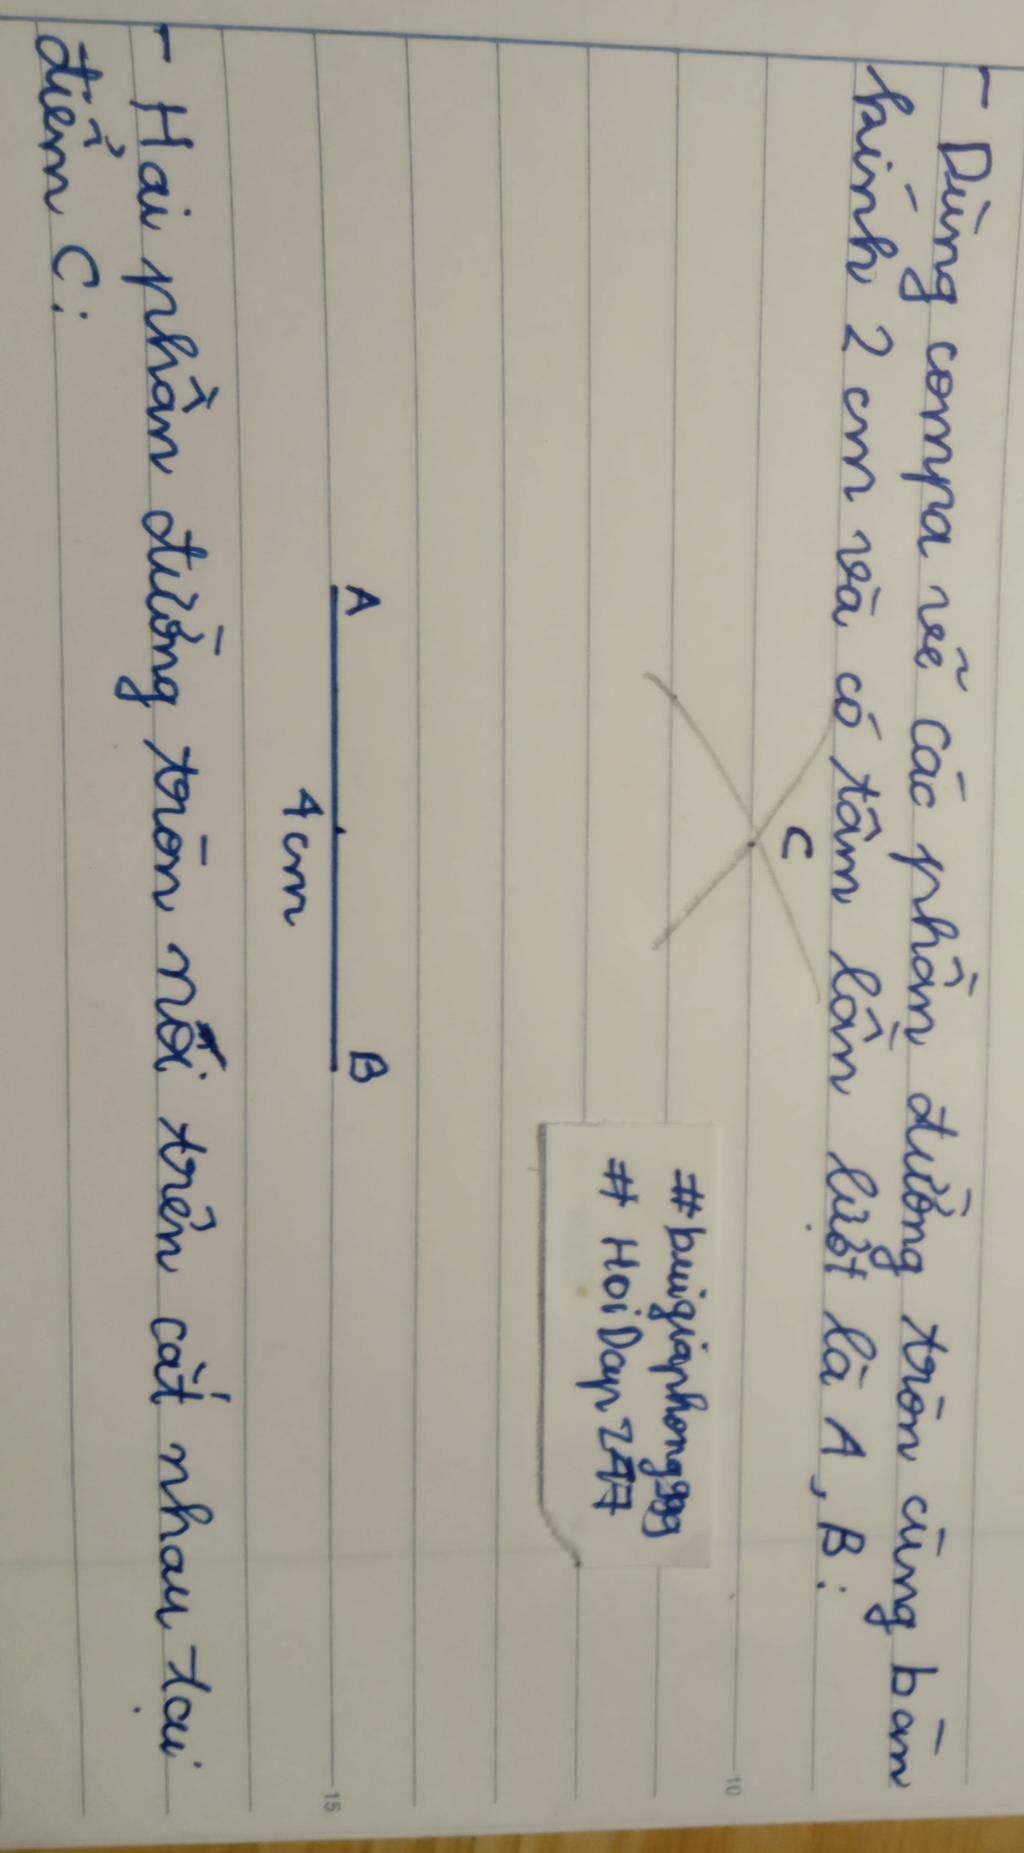 - Dùng compa vẽ các phần đường tròn cùng bán
kính 2 cm và có tâm lần lượt là A, B:
C
#buigiaphong
# HoiDap247
A
B
4cm
- Hai phần đường tròn nói trên cắt nhau tại
điểm C:
10
15